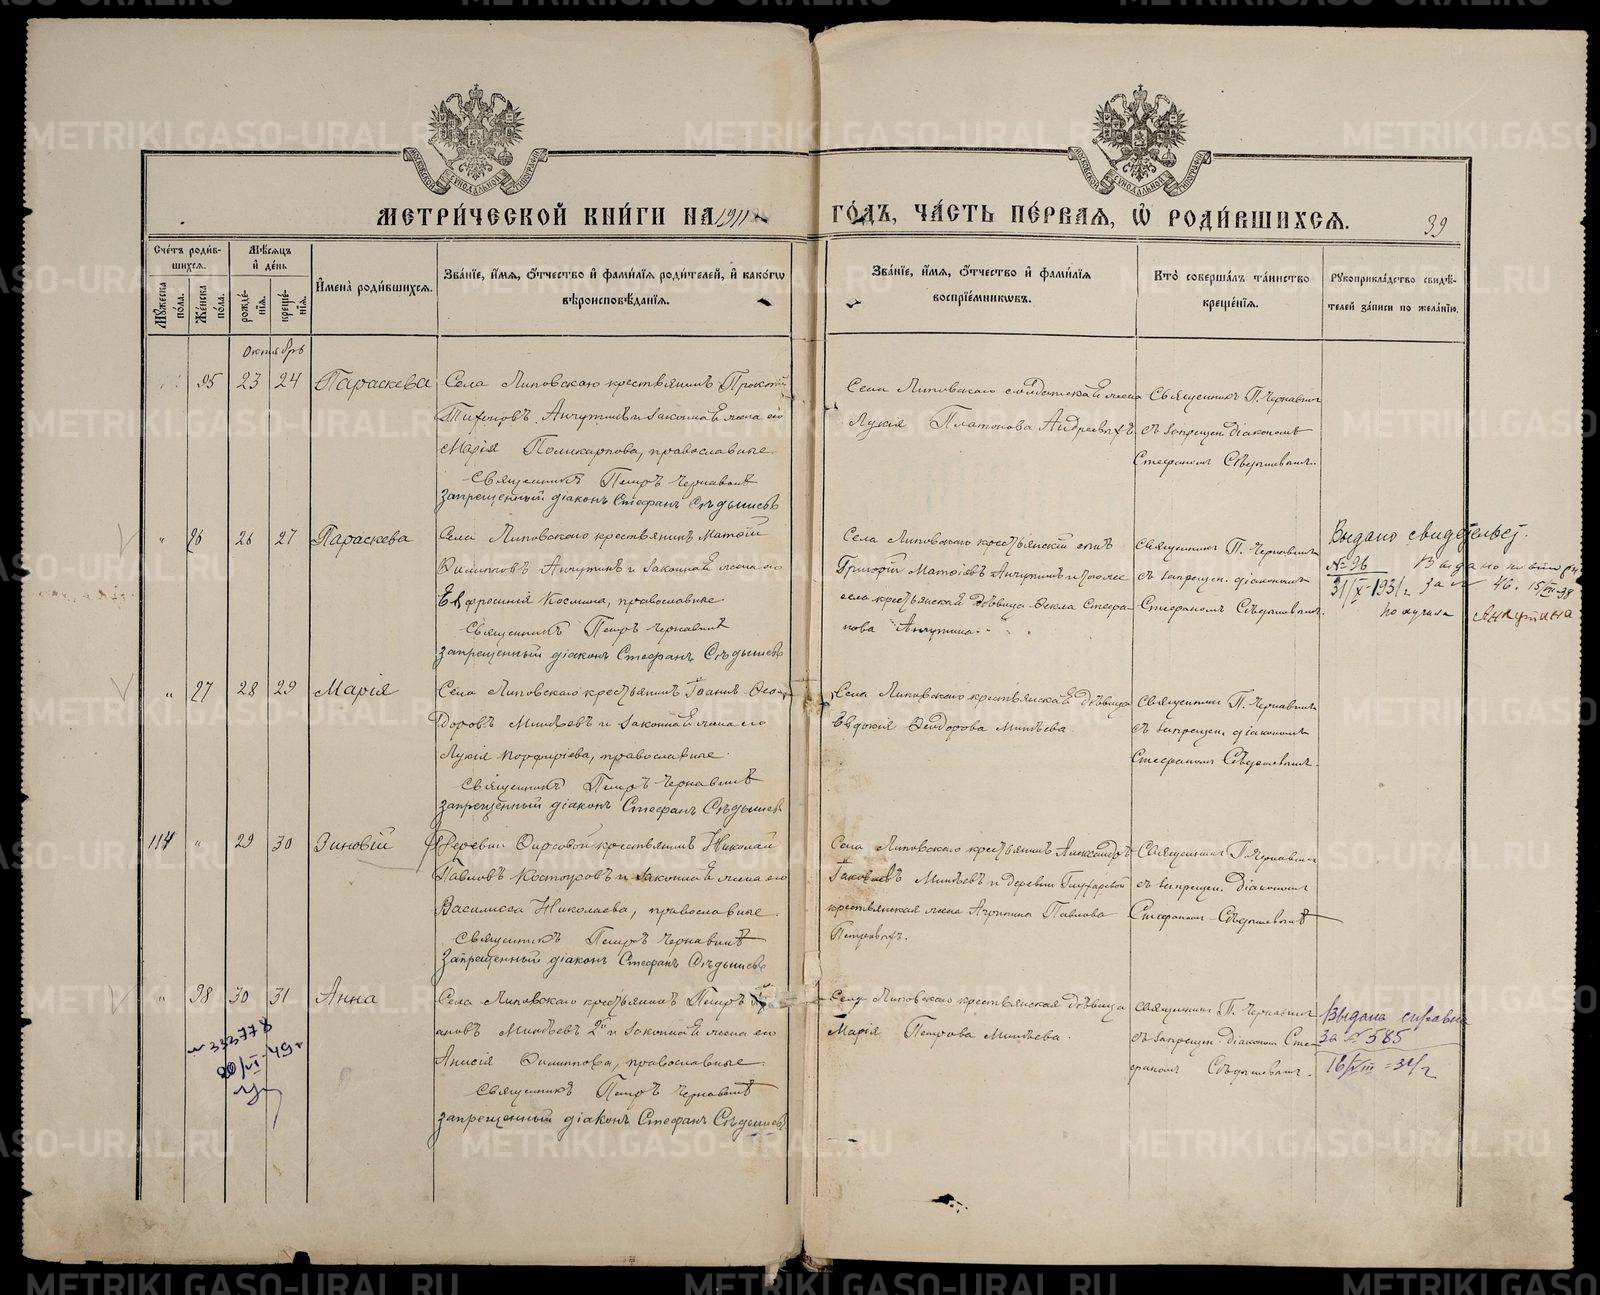 МЕТРИ́ЧЕСКОЙ КНИ́ГИ НА 1911
ГО́ДЪ, ЧА́СТЬ ПЕ́РВАЯ, Ѡ҆ РОДИ́ВШИХСѦ.
39
Сче́тъ роди́в-
шихсѧ.
Мѣ́сѧцъ
и҆ де́нь
Мꙋ́жеска по́ла.
Же́нска по́ла.
рожде́-нїѧ.
креще́-нїѧ.
И҆мена̀ роди́вшихсѧ.
Зва́нїе, и҆́мѧ, ѻ҆́тчество и҆ фами́лїѧ роди́телей, и҆ како́гѡ
вѣроисповѣ́данїѧ.
Зва́нїе, и҆́мѧ, ѻ҆́тчество и҆ фами́лїѧ
воспрїе́мникѡвъ.
Кто̀ соверша́лъ та́инство
креще́нїѧ.
Рꙋкоприкла́дство свидѣ́-
телей за́писи по жела́нїю.
Октябрь
95 23 24 Параскева
Села Липовскаго крестьянинъ Прокопій
Тихоновъ Анчутинъ и законная жена его
Марія Поликарпова, православные.
Священникъ Петръ Чернавинъ
Запрещенный діаконъ Стефанъ Сѣдышевъ
Села Липовскаго солдатская жена
Лукія Платонова Андреевыхъ.
Священникъ П. Чернавинъ
съ запрещен. діакономъ
Стефаномъ Сѣдышевымъ.
" 96 26 27 Параскева
Села Липовскаго крестьянинъ Матѳій
Филипповъ Анчутинъ и законная жена его
Евфросинія Космина, православные.
Священникъ Петръ Чернавинъ
Запрещенный діаконъ Стефанъ Сѣдышевъ
Села Липовскаго крестьянскій сынъ
Григорій Матѳіевъ Анчутинъ и того же
села крестьянская дѣвица Ѳекла Стефа-
нова Анчутина.
Священникъ П. Чернавинъ
съ запрещен. діакономъ
Стефаномъ Сѣдышевымъ.
Выдано свидетельст.
№ 96
31/IX-1931 г.
за № 46. 15/III-38
получила Анчутина
" 97 28 29 Марія
Села Липовскаго крестьянинъ Іоаннъ Ѳео-
доровъ Минѣевъ и законная жена его
Лукія Порфиріева, православные.
Священникъ Петръ Чернавинъ
Запрещенный діаконъ Стефанъ Сѣдышевъ
Села Липовскаго крестьянская дѣвица
Евдокія Ѳеодорова Минѣева
Священникъ П. Чернавинъ
съ запрещен. діакономъ
Стефаномъ Сѣдышевымъ.
114 " 29 30 Зиновій
Деревни Фирсовой крестьянинъ Николай
Павловъ Костоусовъ и законная жена его
Василисса Николаева, православные.
Священникъ Петръ Чернавинъ
Запрещенный діаконъ Стефанъ Сѣдышевъ
Села Липовскаго крестьянинъ Александръ
Іаковлевъ Минѣевъ и деревни Глухаревой
крестьянская жена Агрипина Павлова
Петровыхъ.
Священникъ П. Чернавинъ
съ запрещен. діакономъ
Стефаномъ Сѣдышевымъ
" 98 30 31 Анна
Села Липовскаго крестьянинъ Петръ Іо-
анновъ Минѣевъ 2й и законная жена его
Анисія Филиппова, православные.
Священникъ Петръ Чернавинъ
запрещенный діаконъ Стефанъ Сѣдышевъ
Села Липовскаго крестьянская дѣвица
Марія Петрова Минѣева.
Священникъ П. Чернавинъ
съ запрещен. діакономъ Сте-
фаномъ Сѣдышевымъ.
Выдана справка
за № 585
16/VIII-32 г
№ 333778
20/VI-49 г